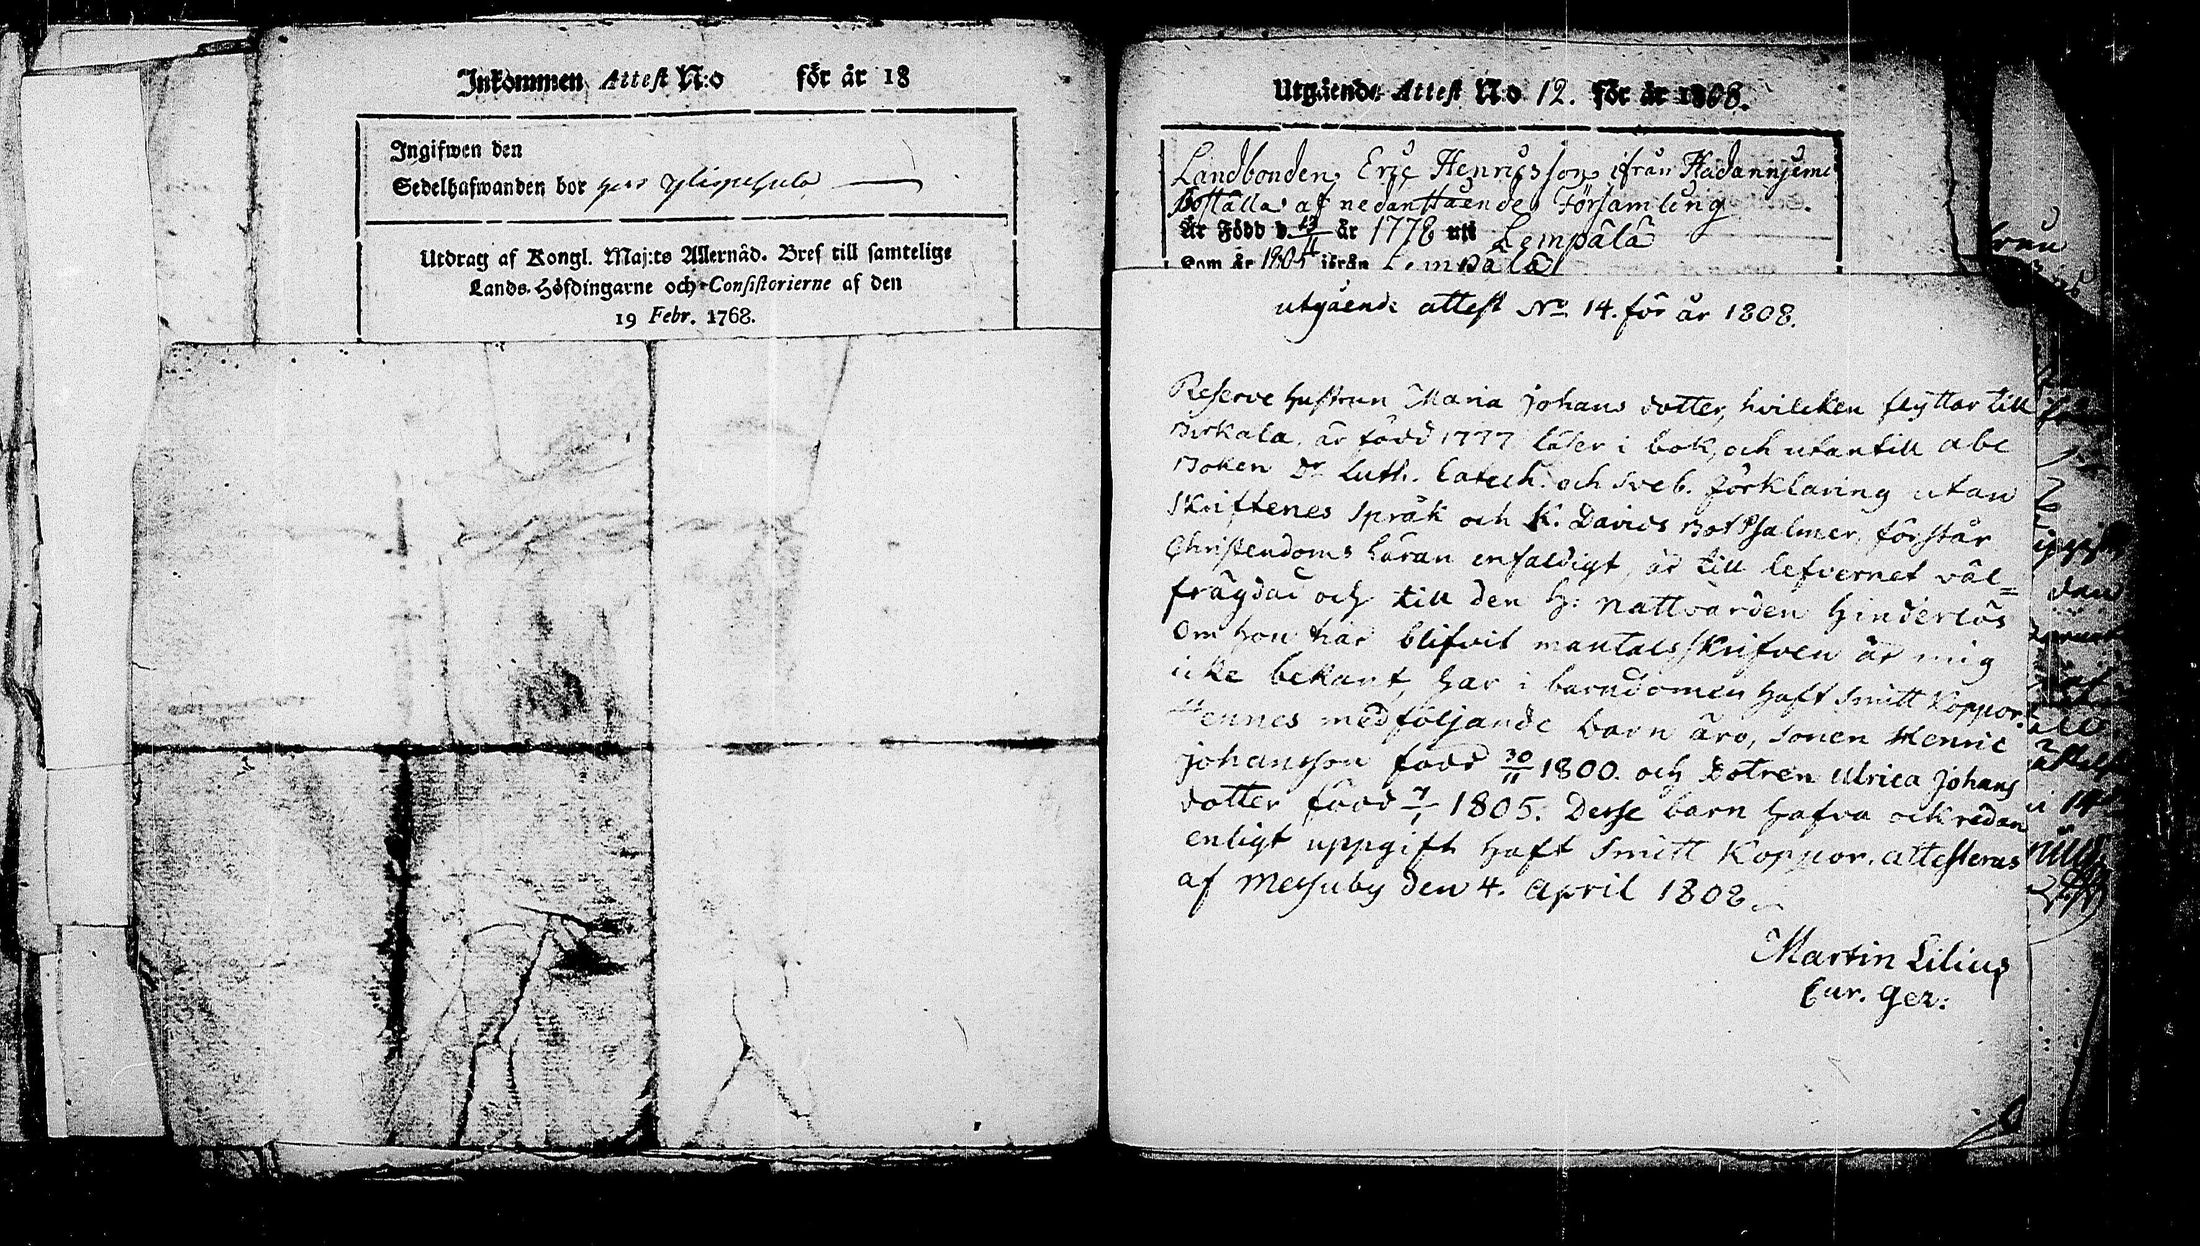 Inkommen Attest N:o för år 18
Ingifwen den
Sedelhafwanden bor
Utdrag af Kongl. Maj:ts Allernåd. Bref till samtelige
Lands-Höfdingarne och Consistorierne af den
19 Febr. 1768.
Utgående Attest No 12. för år 1808.
Landbonden Eric Henricsson ifrån
Boställe af nedanstående Församling
Är Född d. 13/11 år 1778 uti Lempälä
Som år 1805 ifrån Lempälä
utgående attest No 14. för år 1808.
Reserve hustrun Maria Johans dotter, hvilcken flyttar till
Birkala, är född 1777 läser i bok, och utantill abc
Boken Dr Luth. Catech. och Sveb. förklaring utan
Skriftenes Språk och K. Davids Bot Psalmer, förstår
Christendoms Läran enfaldigt, är till lefvernet väl=
frägdad och till den H: Nattvarden hinderlös
Om hon här blifvit mantalsskrifven är mig
icke bekant, har i barndomen haft Smitt Koppor.
Hennes medföljande barn äro, Sonen Henric
Johansson född 30/11 1800. och Dotren Ulrica Johans
dotter född 7/1 1805. Desse barn hafva ock redan
enligt uppgift haft Smitt Koppor. attesteras
af Messuby den 4. April 1808.
Martin Lilius
Cur. Ger: